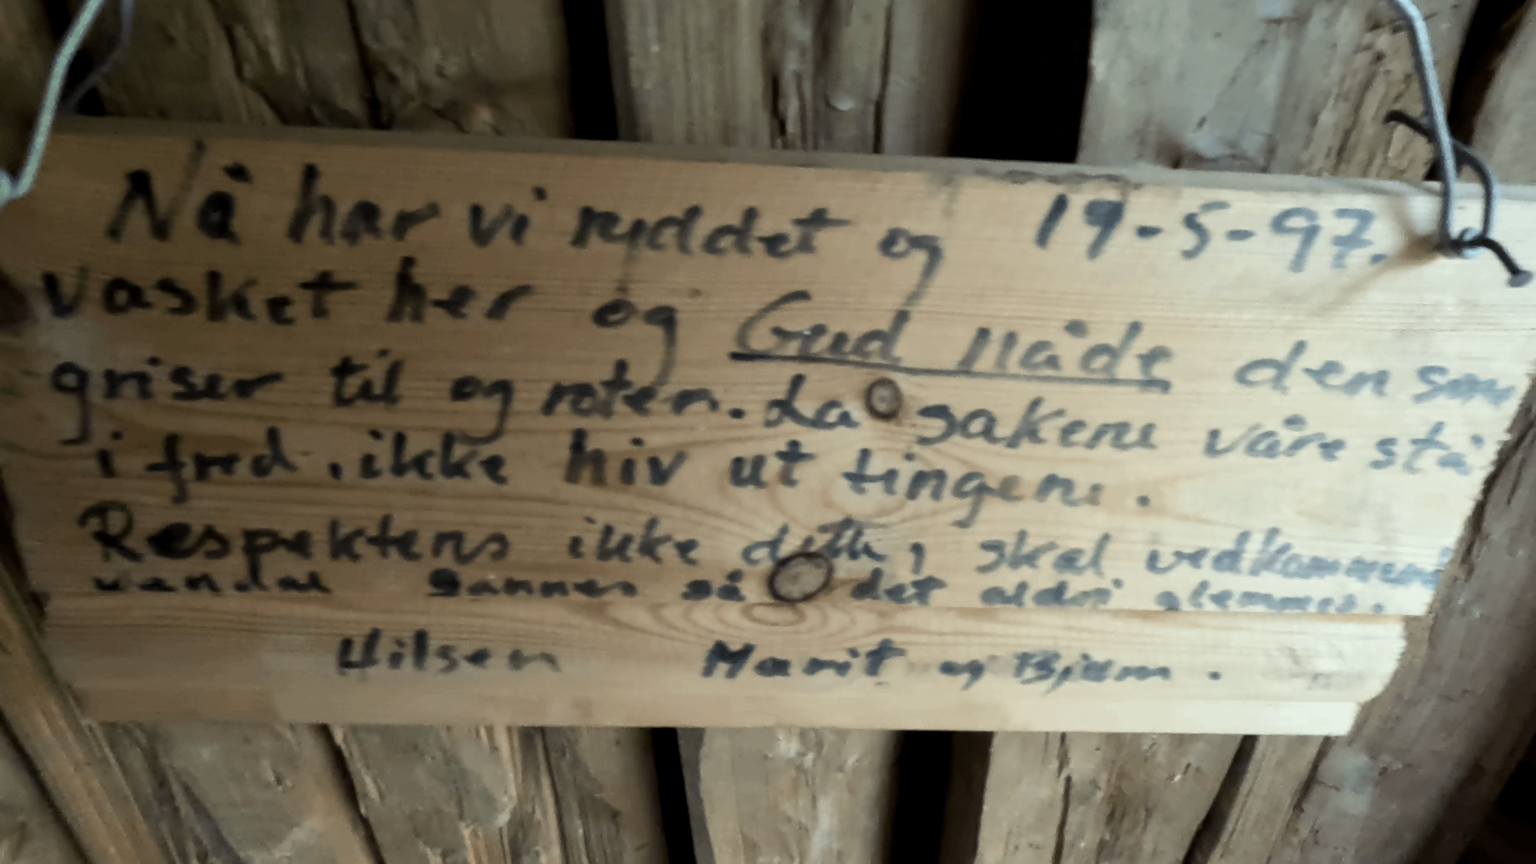 Nå har vi ryddet og 19-5-97.
vasket her og Gud nåde den som
griser til og roter. La sakene våre stå
i fred, ikke hiv ut tingene.
Respekteres ikke dette, skal vedkommende
vandal bannes så det aldri glemmes.
Hilsen Marit og Bjørn.